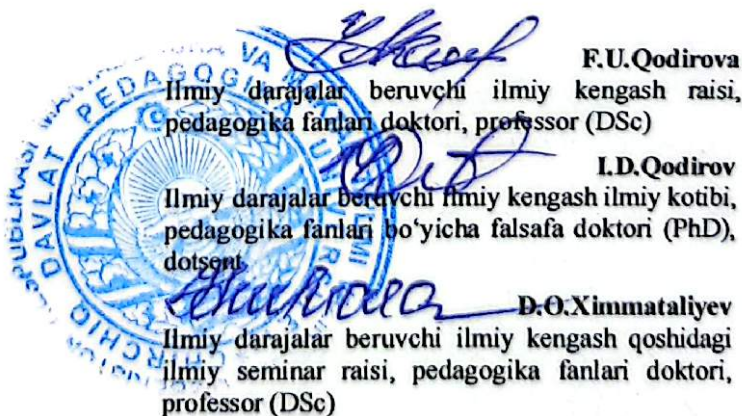 F.U.Qodirova
Ilmiy darajalar beruvchi ilmiy kengash raisi,
pedagogika fanlari doktori, professor (DSc)
I.D.Qodirov
Ilmiy darajalar beruvchi ilmiy kengash ilmiy kotibi,
pedagogika fanlari bo‘yicha falsafa doktori (PhD),
dotsent
D.O.Ximmataliyev
Ilmiy darajalar beruvchi ilmiy kengash qoshidagi
ilmiy seminar raisi, pedagogika fanlari doktori,
professor (DSc)
DAVLAT PEDAGOGIKA
VA